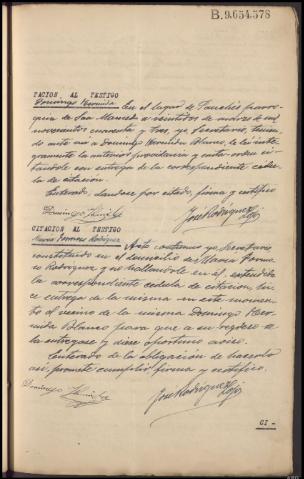 B.9.654.578
TACION AL TESTIGO
Domingo Hermida En el lugar de parro-
quia de San Mamed a veintidos de marzo de mil
novecientos cuarenta y tres, yo Secretario, tenien-
do ante mi a Domingo Hermida Blanco, le lei inte-
gramente la anterior providencia y carta-orden ci-
tandole con entrega de la correspondiente cedu-
la de citación.
Enterado, dandose por citado, firma y certifico
Domingo
José Rodríguez
CITACION AL TESTIGO
Maria Rodriguez Acto continuo yo Secretario
constituido en el domicilio de Maria
Rodriguez y no hallandole en él, extendida
la correspondiente cedula de citación, hi-
ce entrega de la misma en este momen-
to al vecino de la misma Domingo Her-
mida Blanco para que a su regreso se
la entregase y diese oportuno aviso.
Enterado de la obligación de hacerlo
asi, promete cumplirlo firma y certifico.
Domingo
José Rodríguez
CI -